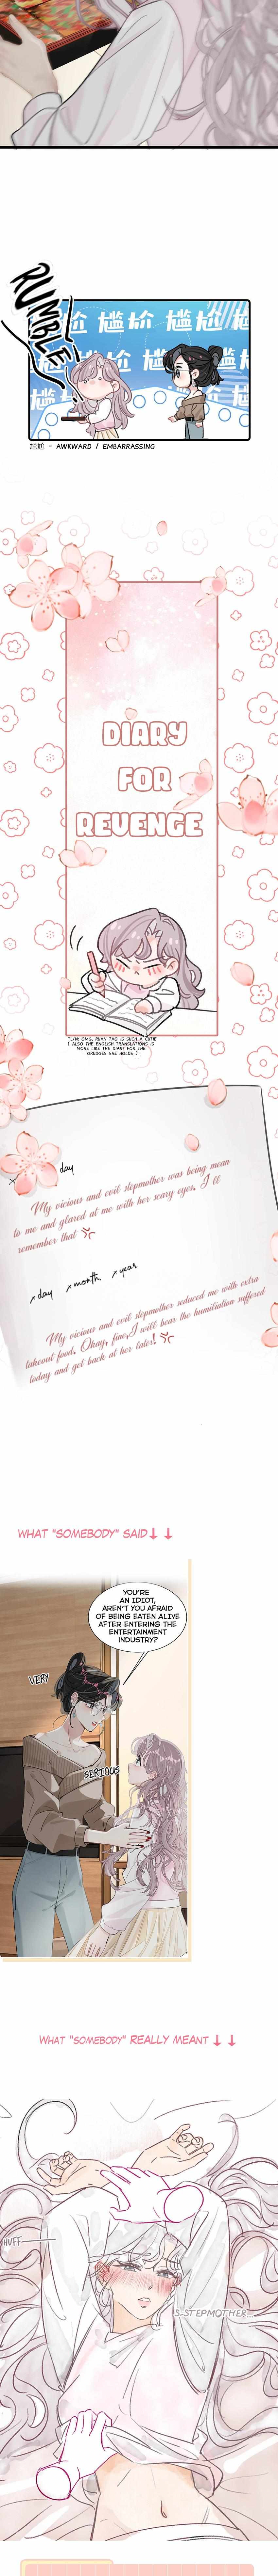 RUMBLE
尴 尴尬 尴尬 尴
尴尬 - AWKWARD / EMBARRASSING
DIARY
FOR
REVENGE
TL/N: OMG, RUAN TAO IS SUCH A CUTIE
( ALSO THE ENGLISH TRANSLATIONS IS
MORE LIKE THE DIARY FOR THE
GRUDGES SHE HOLDS )
x day
My vicious and evil stepmother was being mean
to me and glared at me with her scary eyes. I ll
remember that
x day x month x year
My vicious and evil stepmother seduced me with extra
takeout food. Okay, fine,I will bear the humiliation suffered
today and get back at her later!
WHAT "SOMEBODY" SAID↓ ↓
YOU'RE
AN IDIOT,
AREN'T YOU AFRAID
OF BEING EATEN ALIVE
AFTER ENTERING THE
ENTERTAINMENT
INDUSTRY?
VERY
SERIOUS
WHAT "SOMEBODY" REALLY MEANT ↓ ↓
HUFF
S-STEPMOTHER...